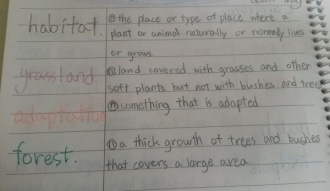 habitat. ⓝ the place or type of place where a
plant or animal naturally or normally lives
or grows.
grassland ⓝ land covered with grasses and other
soft plants but not with bushes and trees
adaptation ⓝ something that is adapted
forest. ⓝ a thick growth of trees and bushes
that covers a large area